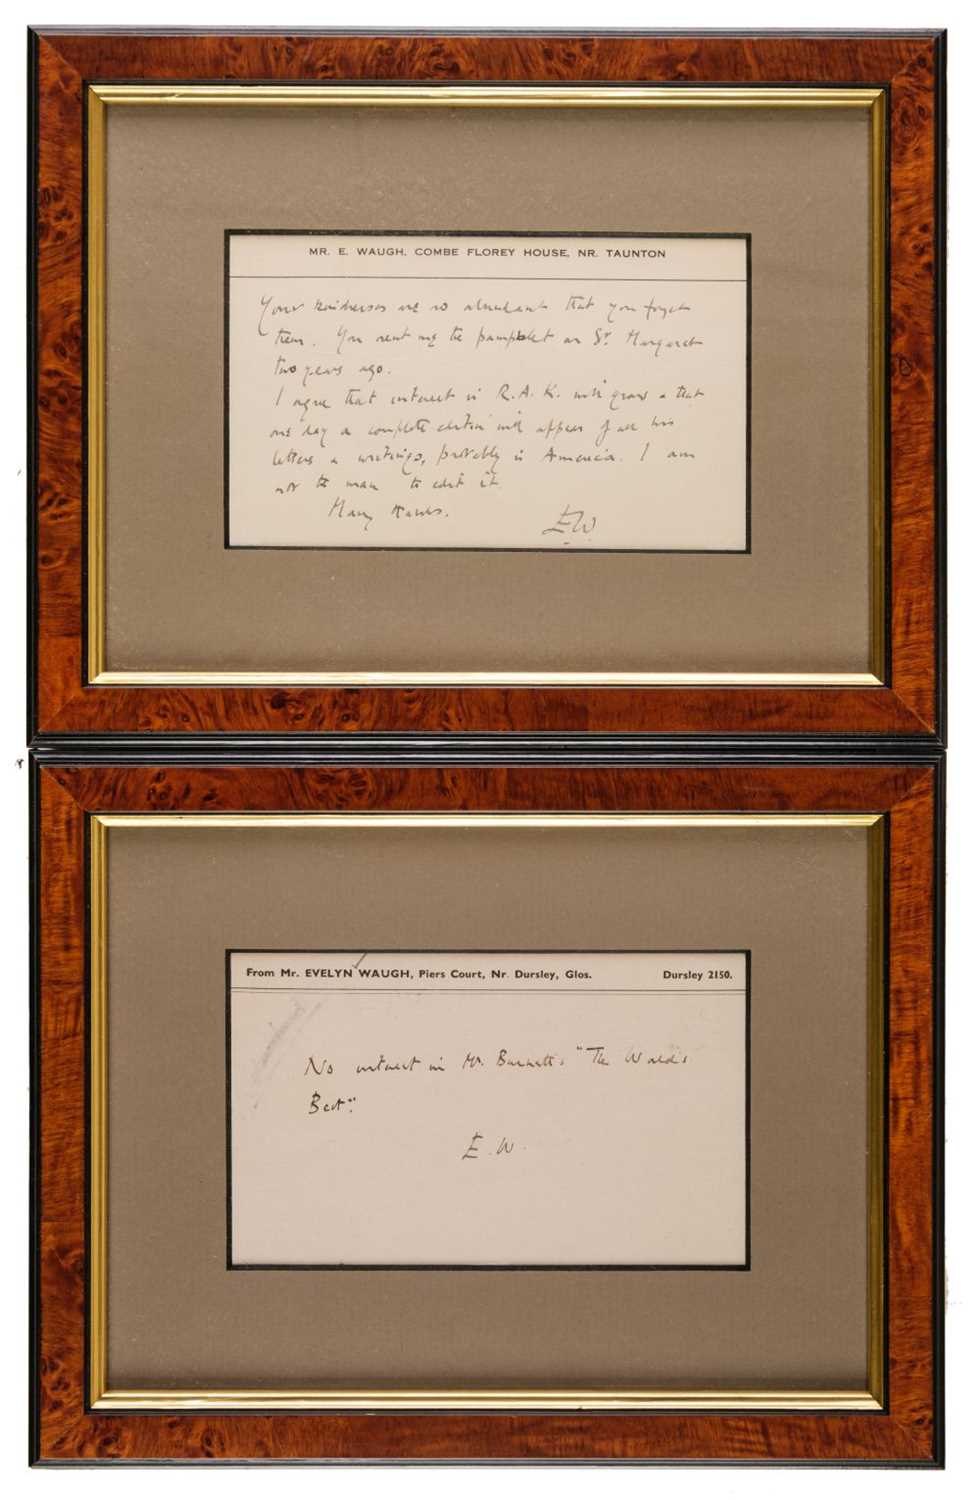 MR. E. WAUGH, COMBE FLOREY HOUSE, NR. TAUNTON
Your kindnesses are so abundant that you forget
them. You sent me the pamphlet on St. Margaret
two years ago.
I agree that interest in R.A.K. will grow & that
one day a complete edition will appear of all his
letters & writings, probably in America. I am
not the man to edit it.
Many thanks.
EW
From Mr. EVELYN WAUGH, Piers Court, Nr. Dursley, Glos. Dursley 2150.
No interest in Mr. Burnett's "The World's
Best".
E.W.